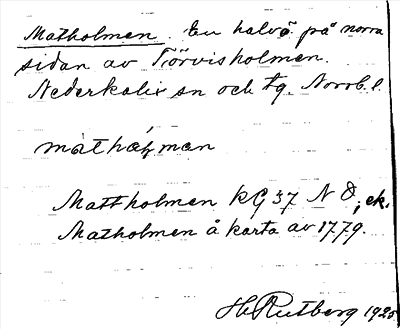 Matholmen. En halvö på norra
sidan av Törvisholmen.
Nederkalix sn och tg. Norrb. l.
Mattholmen kG 37 N 8; ek.
Matholmen å karta av 1779.
H. Rutberg 1925